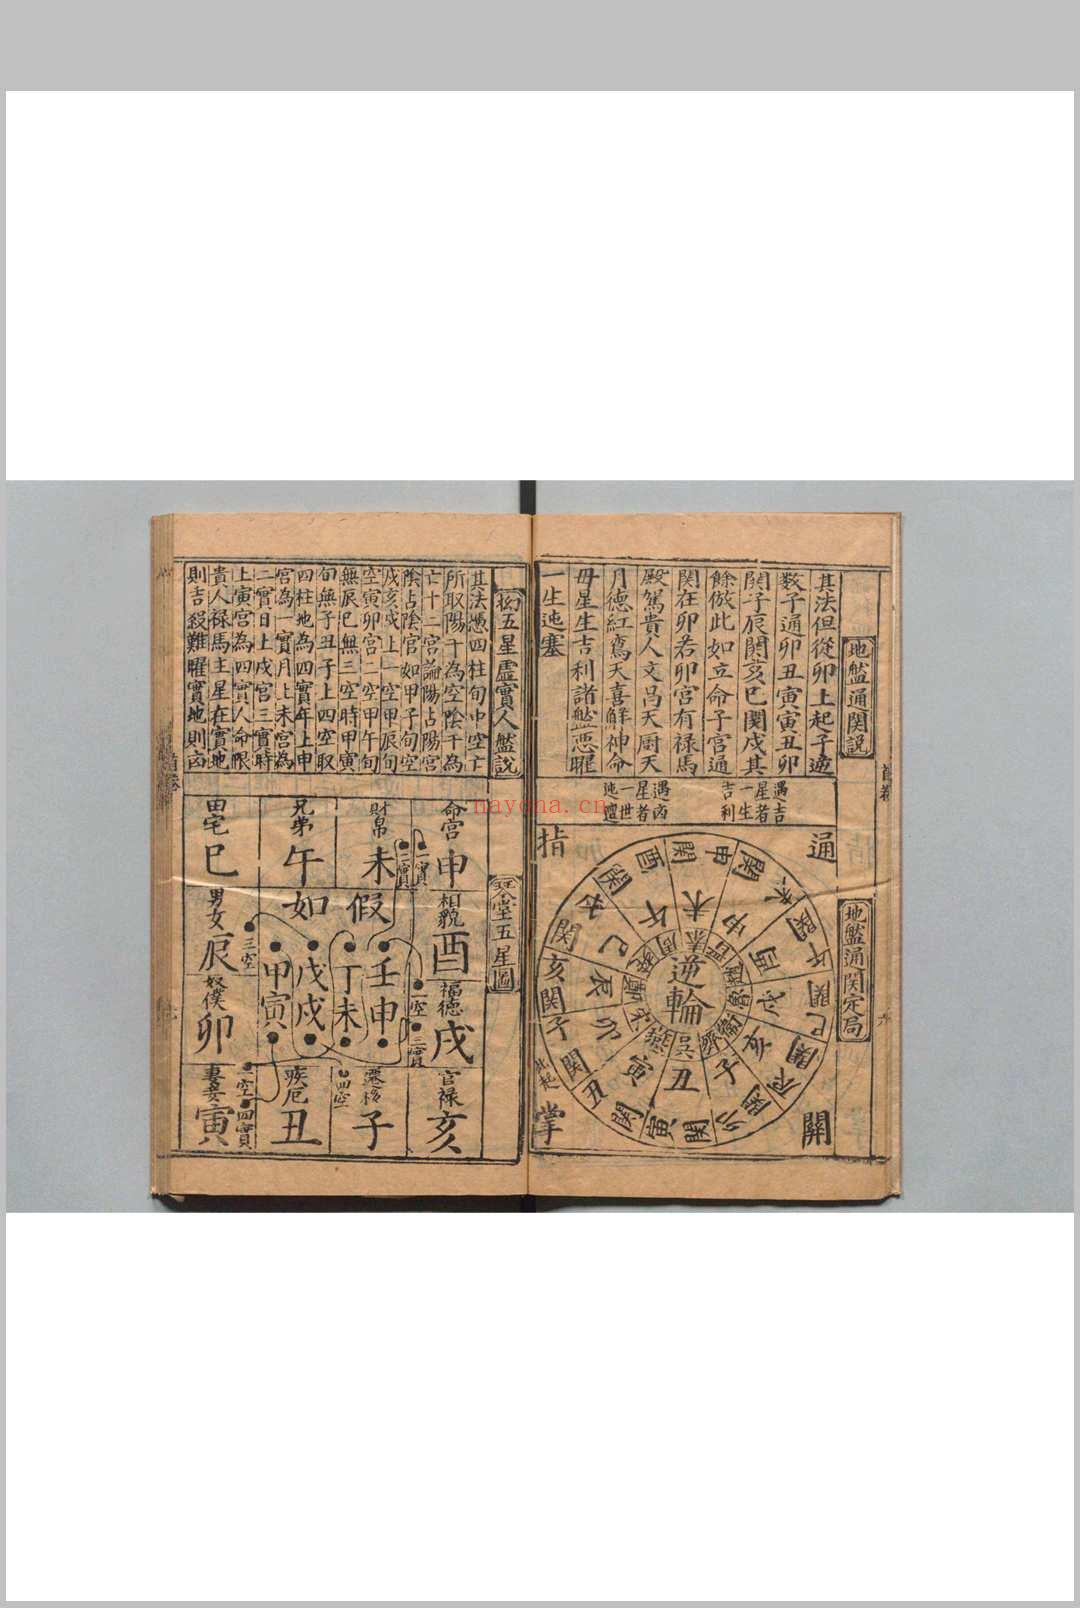 地盤通関説
其法但從卯上起子逆
数子通卯丑寅寅丑卯
関子辰関亥巳関戌其
餘倣此如立命子宮通
関在卯若卯宮有禄馬
殿駕貴人文昌天厨天
月德紅鸞天喜解神命
毋星生吉利諸盤悪曜
一生迍塞
遇吉
星者
一生
吉利
遇凶
星者
一世
迍邅
地盤通関定局
通
関
指
掌
逆輪
按五星虛實人盤説
其法憑四柱旬中空亡
所取陽干為空陰干為
亡十二宮論陽占陽宮
陰占陰宮如甲子旬空
戌亥戌上一空甲辰旬
空寅卯宮二空甲午旬
無辰巳無三空時甲寅
旬無子丑子上四空取
四柱地為四實年上申
宮為一實月上未宮為
二實日上戌宮三實時
上寅宮為四實人命限
貴人禄馬主星在實地
則吉殺難曜實地則凶
琴堂五星圖
命宮 申
相貌 酉
福德 戌
官禄 亥
財帛 未
兄弟 午
田宅 巳
男女 辰
奴僕 卯
妻妾 寅
疾厄 丑
遷移 子
假如
壬申
丁未
戊戌
甲寅
一實
二實
三實
四實
一空
二空
三空
四空
首卷
nayona.cn